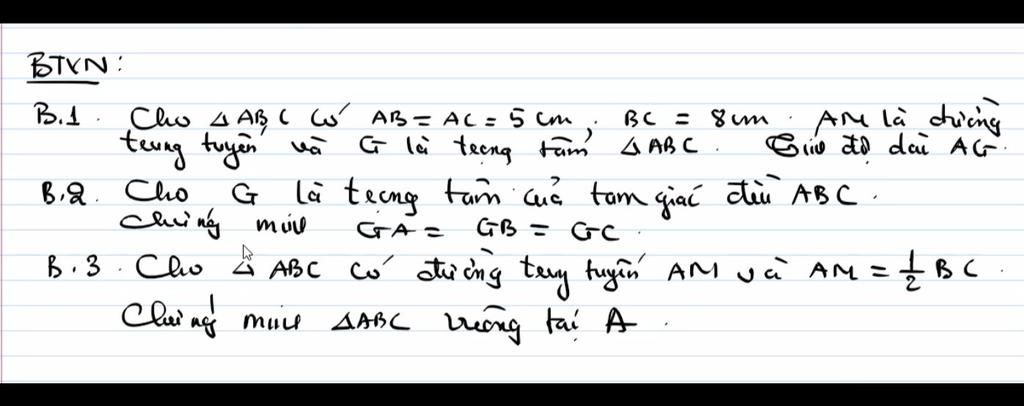 BTVN:
B.1. Cho △ABC có AB = AC = 5 cm, BC = 8cm. AM là đường
trung tuyến và G là trọng tâm △ABC. Tính độ dài AG.
B.2. Cho G là trọng tâm của tam giác đều ABC.
Chứng minh GA = GB = GC.
B.3. Cho △ABC có đường trung tuyến AM và AM = 1/2 BC.
Chứng minh △ABC vuông tại A.